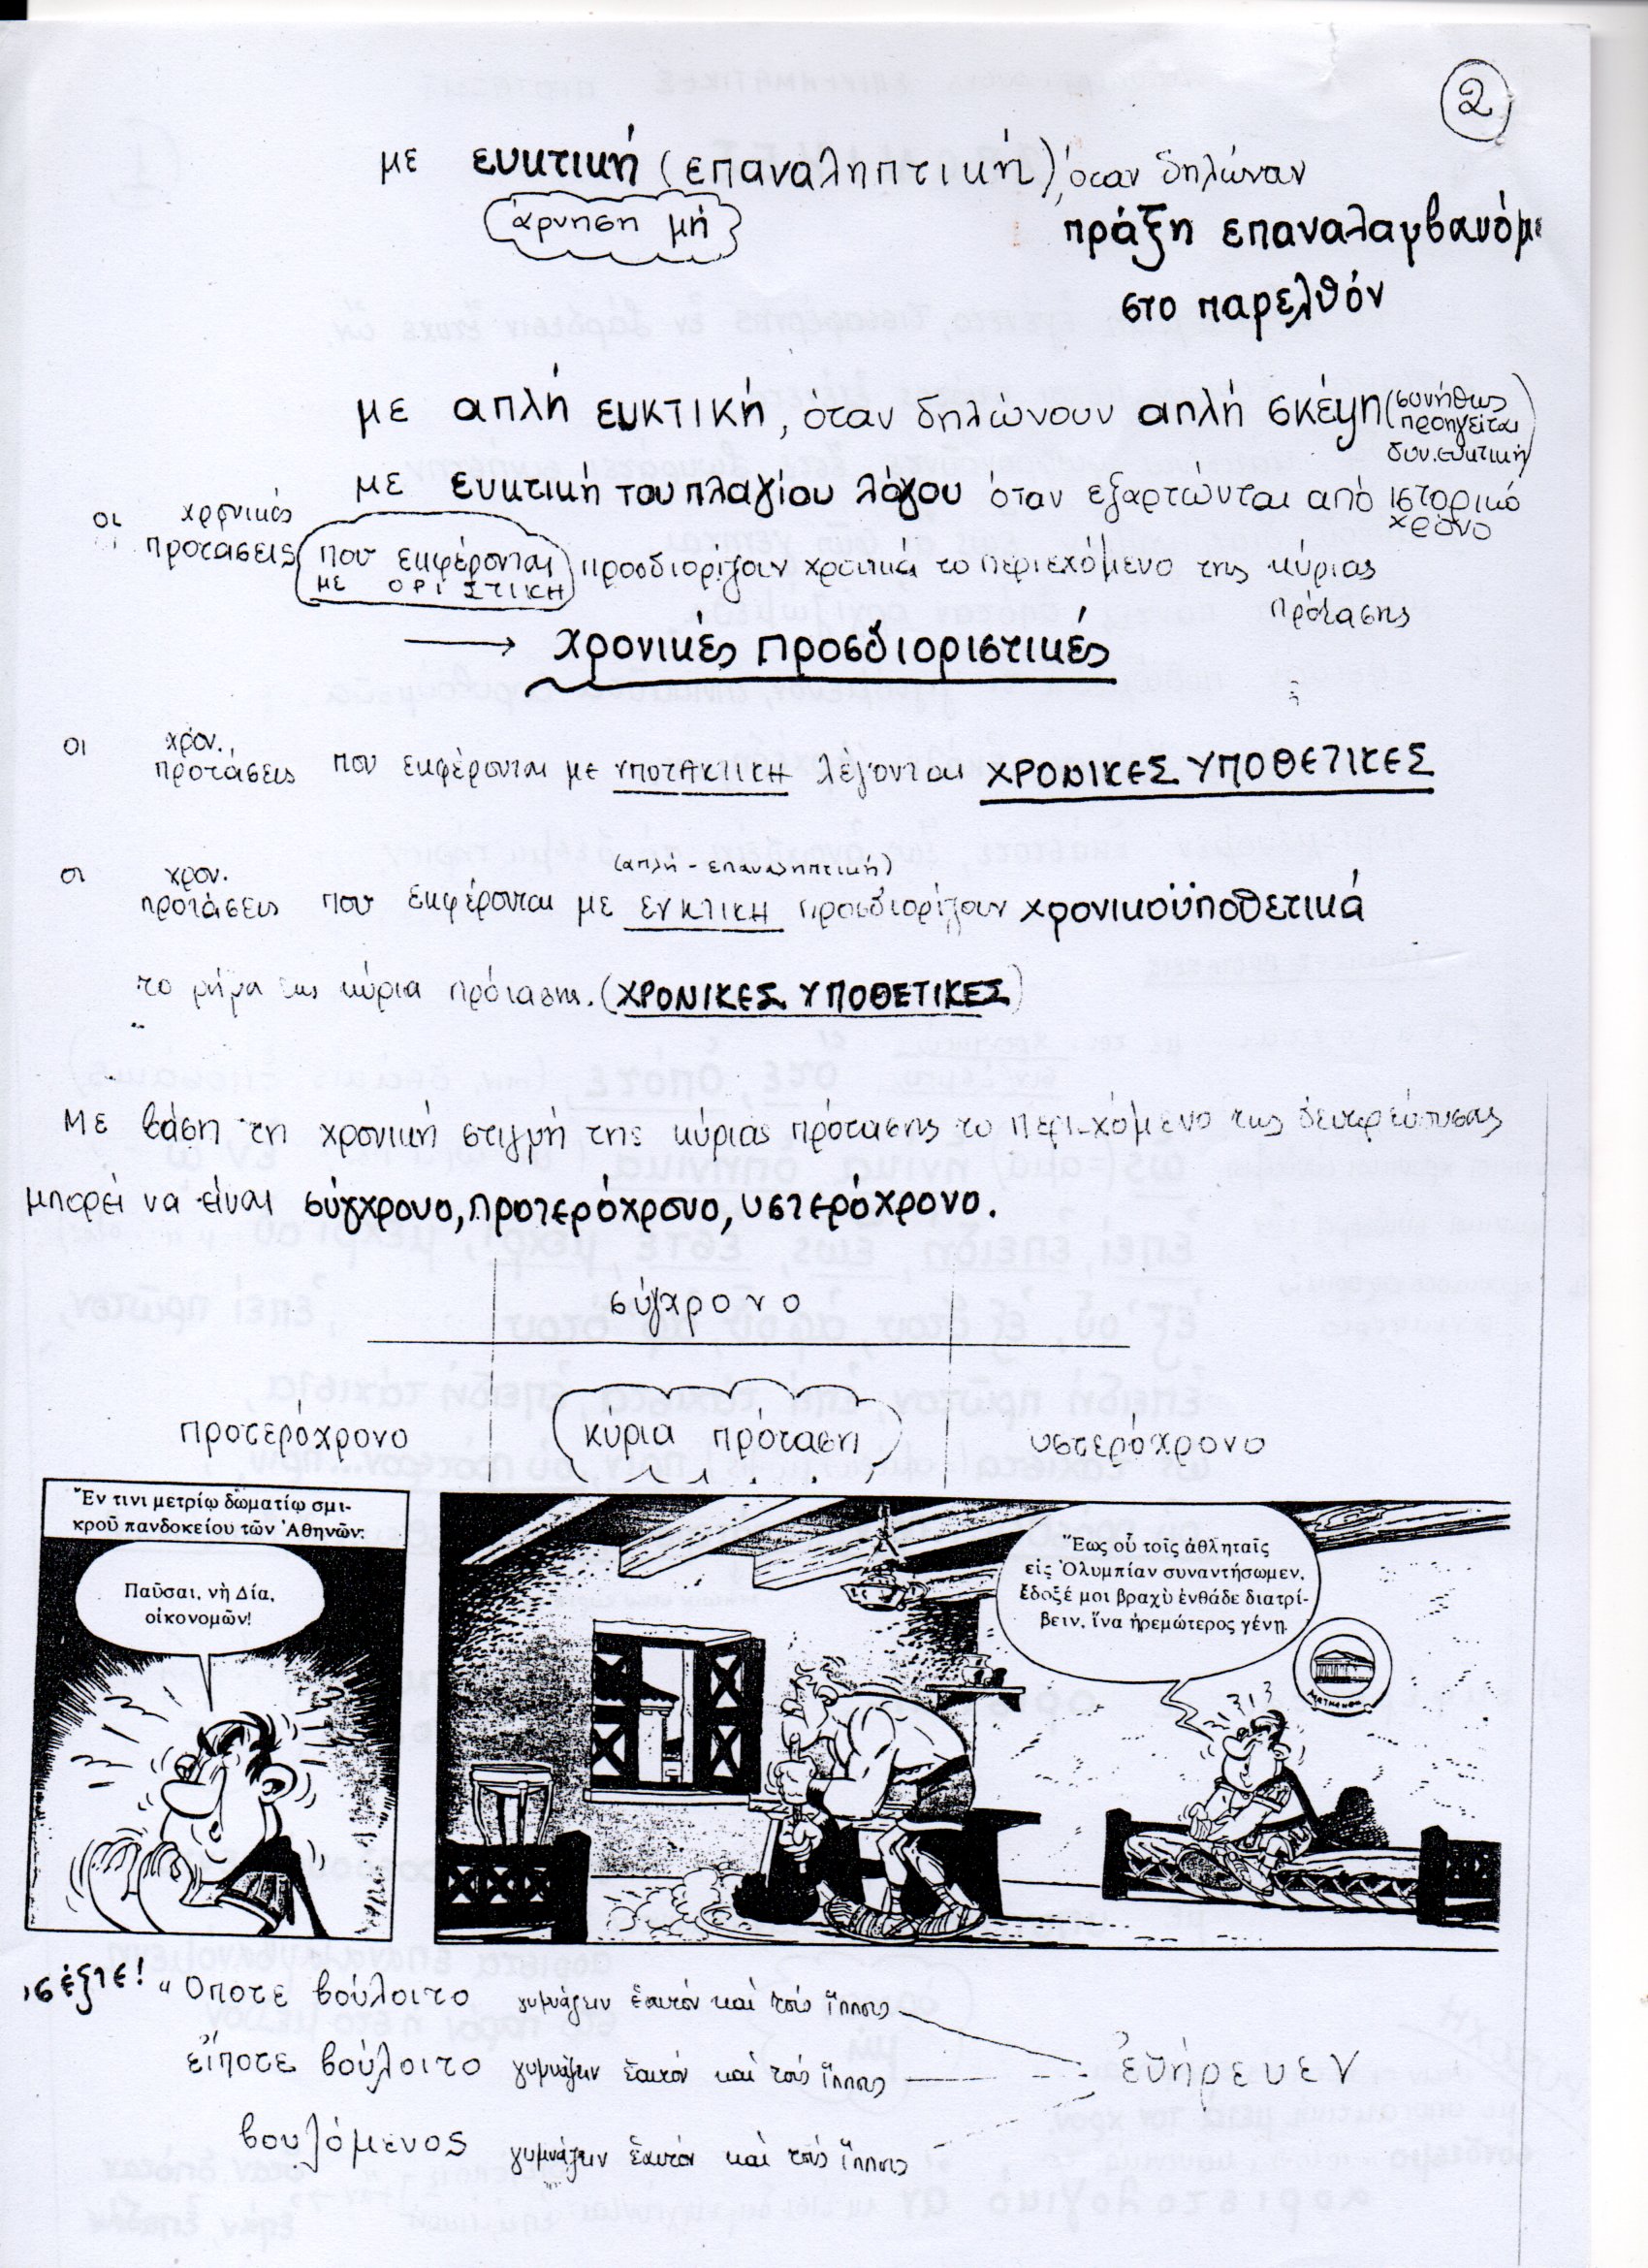 2
με ευκτική (επαναληπτική), όταν δηλώναν
άρνηση μή
πράξη επαναλαμβανόμ
στο παρελθόν
με απλή ευκτική, όταν δηλώνουν απλή σκέψη (συνήθως
προηγείται
δυν. ευκτική)
με ευκτική του πλαγίου λόγου όταν εξαρτώνται από ιστορικό
χρόνο
οι χρονικές
προτάσεις που εκφέρονται προσδιορίζουν χρονικά το περιεχόμενο της κύριας
ΜΕ ΟΡΙΣΤΙΚΗ πρότασης
→ χρονικές προσδιοριστικές
οι χρον.
προτάσεις που εκφέρονται με ΥΠΟΤΑΚΤΙΚΗ λέγονται ΧΡΟΝΙΚΕΣ ΥΠΟΘΕΤΙΚΕΣ
(απλή - επαναληπτική)
οι χρον.
προτάσεις που εκφέρονται με ΕΥΚΤΙΚΗ προσδιορίζουν χρονικοϋποθετικά
το ρήμα της κύρια πρότασης. (ΧΡΟΝΙΚΕΣ ΥΠΟΘΕΤΙΚΕΣ)
Με βάση τη χρονική στιγμή της κύριας πρότασης το περιεχόμενο της δευτερεύουσας
μπορεί να είναι σύγχρονο, προτερόχρονο, υστερόχρονο.
σύγχρονο
προτερόχρονο κύρια πρόταση υστερόχρονο
Ἔν τινι μετρίῳ δωματίῳ σμι-
κροῦ πανδοκείου τῶν Ἀθηνῶν:
Παῦσαι, νὴ Δία,
οἰκονομῶν!
Ἕως οὗ τοῖς ἀθληταῖς
εἰς Ὀλυμπίαν συναντήσωμεν,
ἔδοξέ μοι βραχὺ ἐνθάδε διατρί-
βειν, ἵνα ἠρεμώτερος γένῃ.
σέξτε! "Οποτε βούλοιτο γυμνάζειν ἑαυτόν καὶ τούς ἵππους
εἴποτε βούλοιτο γυμνάζειν ἑαυτόν καὶ τούς ἵππους ἐθήρευεν
βουλόμενος γυμνάζειν ἑαυτόν καὶ τούς ἵππους